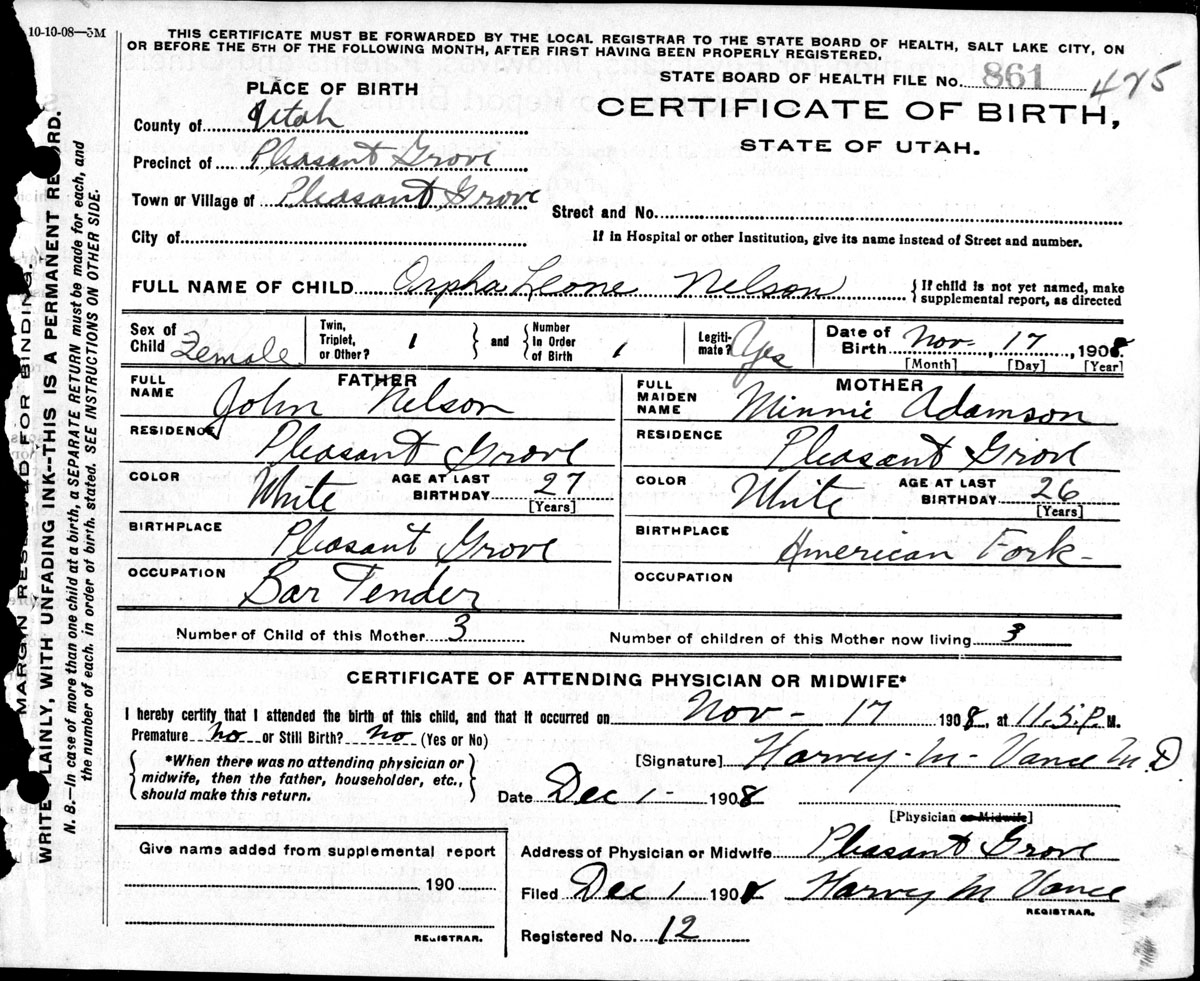 10-10-08—5M
THIS CERTIFICATE MUST BE FORWARDED BY THE LOCAL REGISTRAR TO THE STATE BOARD OF HEALTH, SALT LAKE CITY, ON
OR BEFORE THE 5TH OF THE FOLLOWING MONTH, AFTER FIRST HAVING BEEN PROPERLY REGISTERED.
STATE BOARD OF HEALTH FILE No. 861 475
PLACE OF BIRTH
CERTIFICATE OF BIRTH,
STATE OF UTAH.
County of Utah
Precinct of Pleasant Grove
Town or Village of Pleasant Grove
Street and No.
City of
If in Hospital or other Institution, give its name instead of Street and number.
FULL NAME OF CHILD Orpha Leone Nelson { If child is not yet named, make
supplemental report, as directed
Sex of Child Female
Twin, Triplet, or Other? 1 } and { Number In Order of Birth 1
Legiti-mate? Yes
Date of Birth Nov. 17, 1908.
[Month] [Day] [Year]
FATHER
FULL NAME John Nelson
RESIDENCE Pleasant Grove
COLOR White AGE AT LAST BIRTHDAY 27 [Years]
BIRTHPLACE Pleasant Grove
OCCUPATION Bar Tender
MOTHER
FULL MAIDEN NAME Minnie Adamson
RESIDENCE Pleasant Grove
COLOR White AGE AT LAST BIRTHDAY 26 [Years]
BIRTHPLACE American Fork
OCCUPATION
Number of Child of this Mother 3 Number of children of this Mother now living 3
CERTIFICATE OF ATTENDING PHYSICIAN OR MIDWIFE*
I hereby certify that I attended the birth of this child, and that it occurred on Nov - 17 1908, at 11.5. P. M.
Premature No or Still Birth? No (Yes or No)
{ *When there was no attending physician or
midwife, then the father, householder, etc.,
should make this return. }
[Signature] Harvey M Vance M.D
Date Dec 1 - 1908
[Physician or Midwife]
Give name added from supplemental report
190
REGISTRAR.
Address of Physician or Midwife Pleasant Grove
Filed Dec 1 1908 Harvey M Vance
REGISTRAR.
Registered No. 12
MARGIN RESERVED FOR BINDING.
WRITE PLAINLY, WITH UNFADING INK--THIS IS A PERMANENT RECORD.
N. B.—In case of more than one child at a birth, a SEPARATE RETURN must be made for each, and
the number of each, in order of birth, stated. SEE INSTRUCTIONS ON OTHER SIDE.